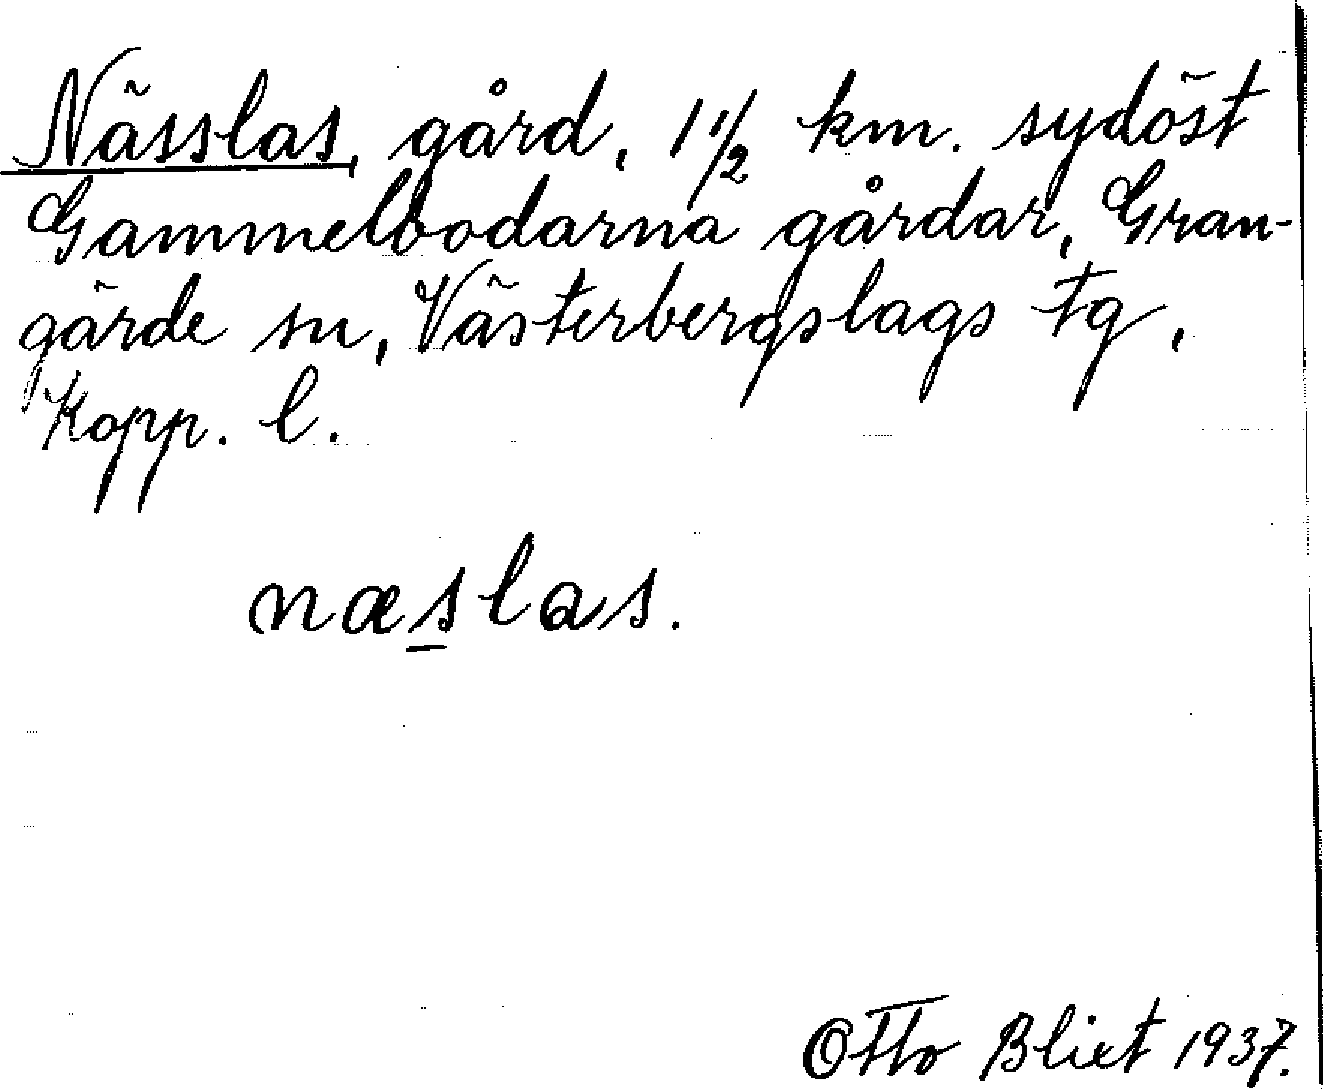 Nässlas, gård, 1 1/2 km. sydöst
Gammelbodarna gårdar, Gran-
gärde sn, Västerbergslags tg,
Kopp. l.
næslas.
Otto Blixt 1937.